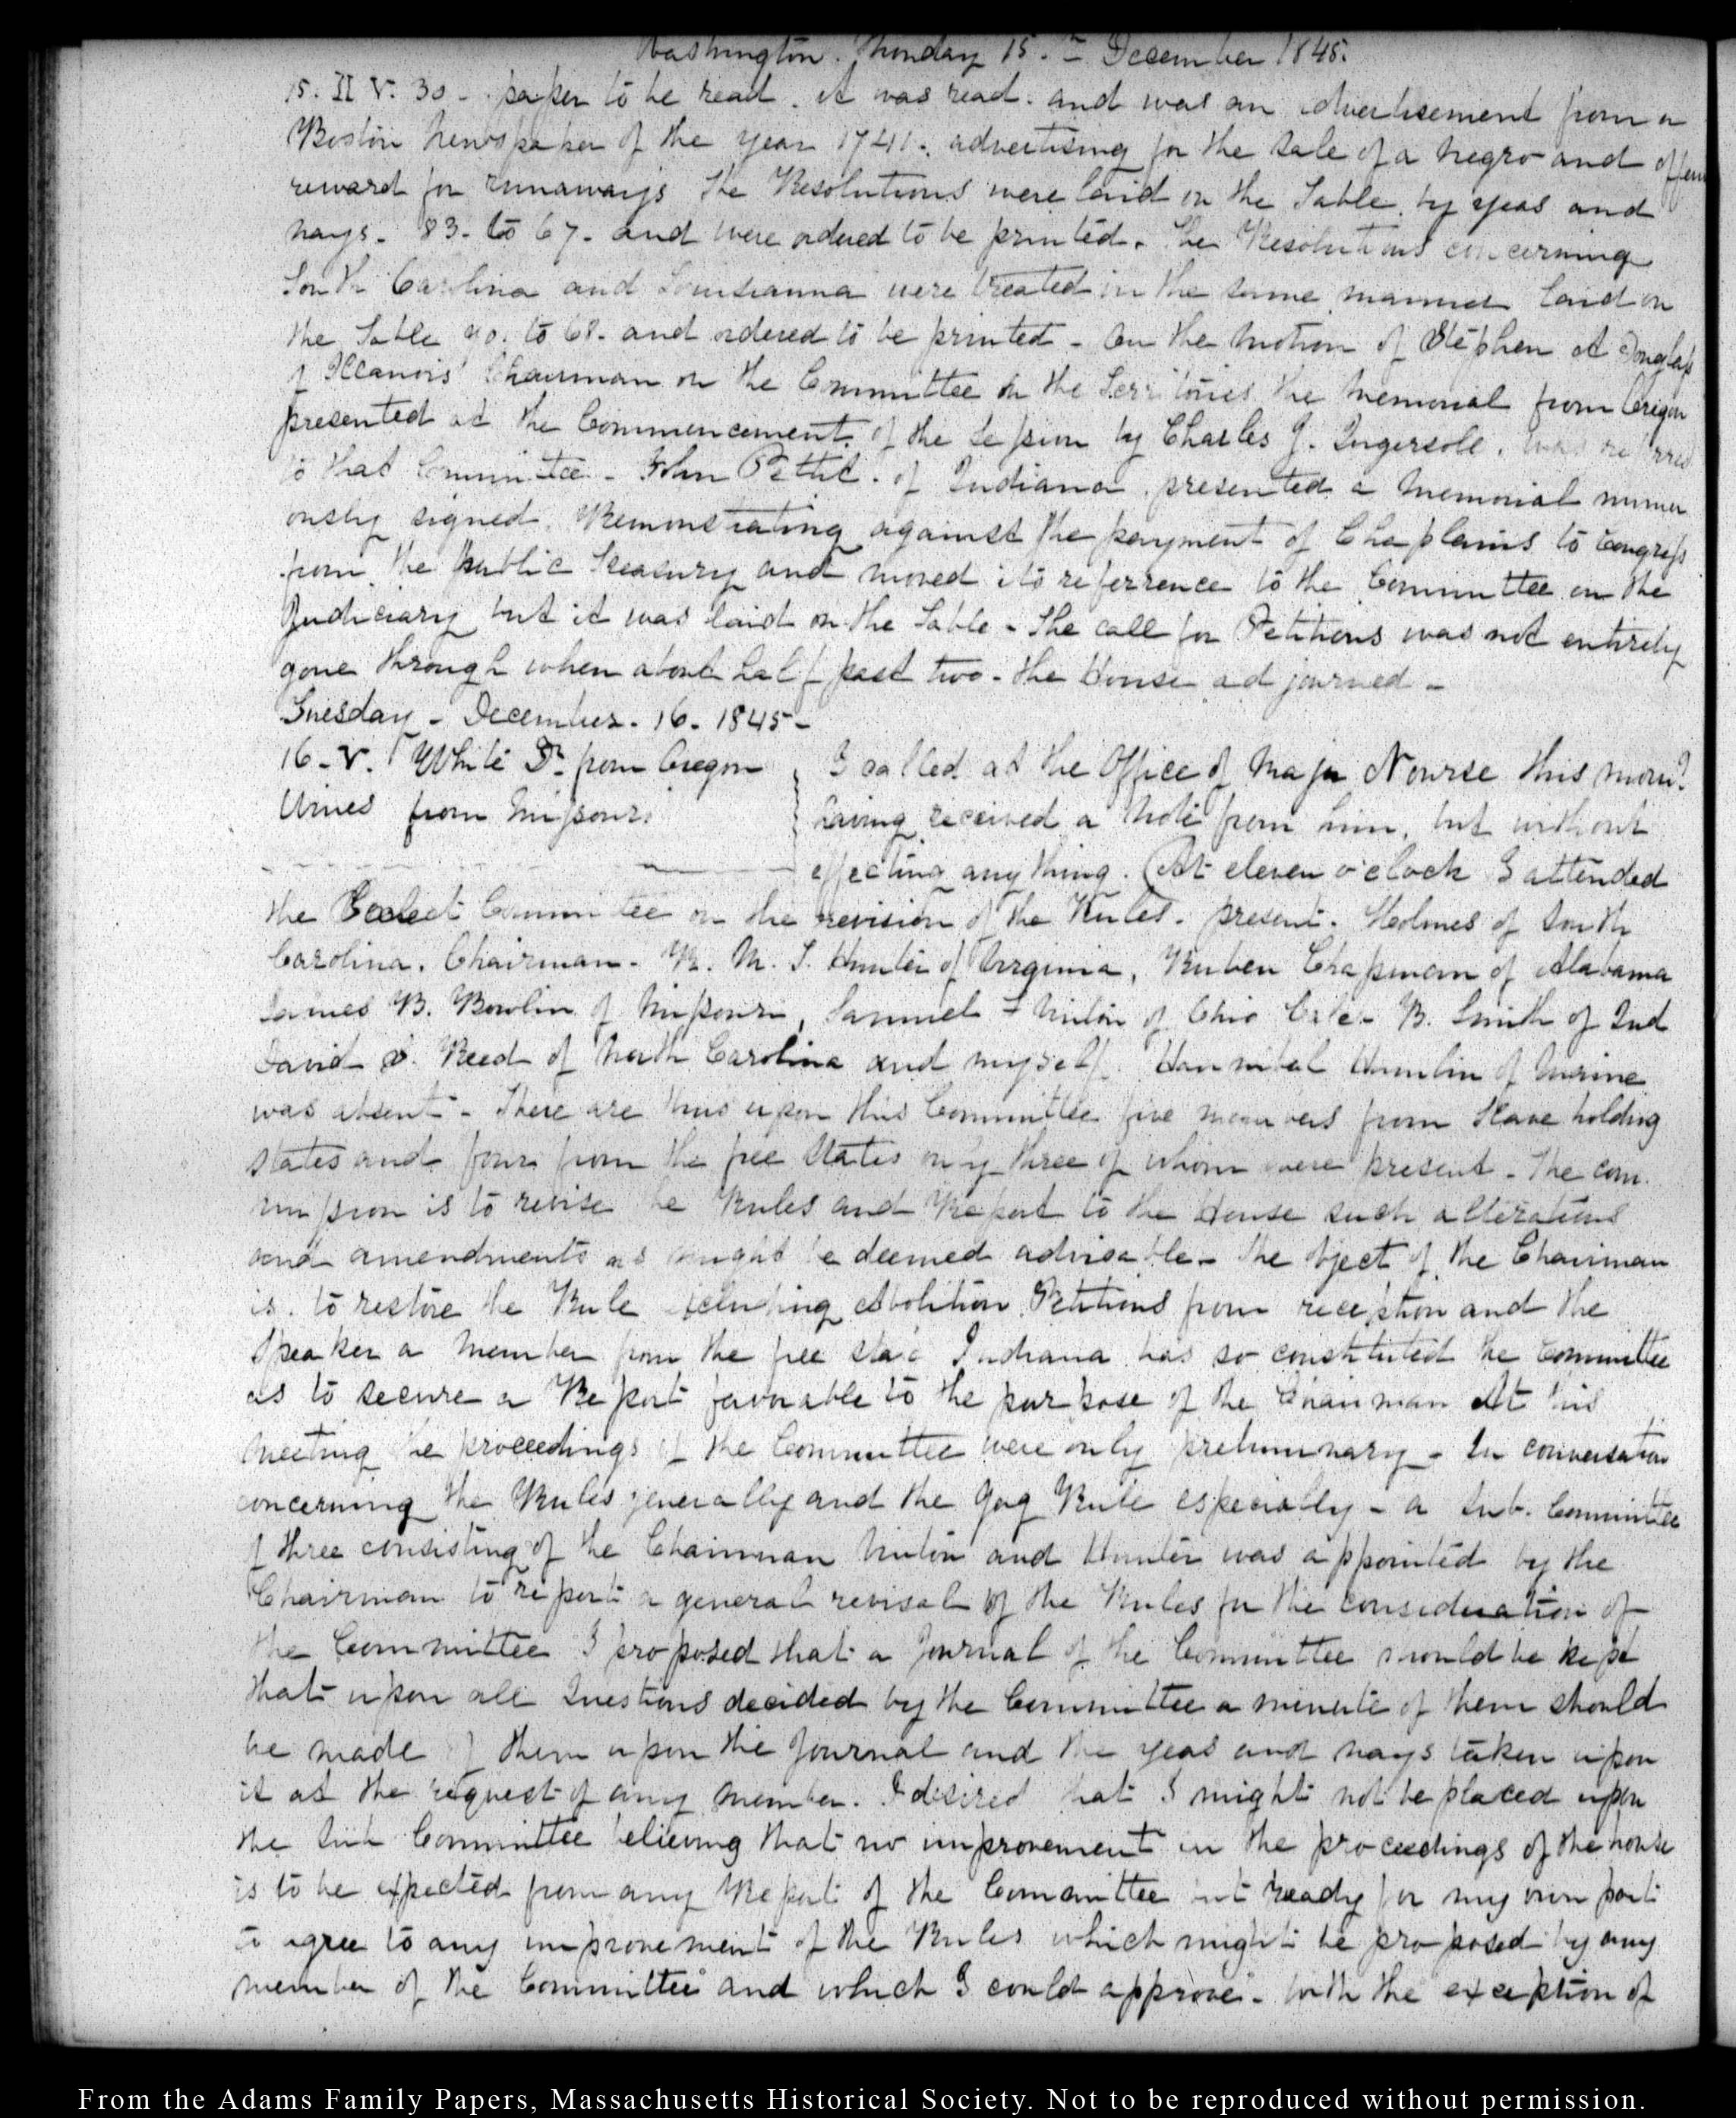 Washington. Monday 15.th December 1845.
15. II V. 30 - paper to be read. it was read. and was an advertisement from a
Boston Newspaper of the year 1741. advertising for the sale of a negro and
reward for runaways The Resolutions were laid on the Table by yeas and
nays. 83. to 67. and were ordered to be printed. The Resolutions concerning
South Carolina and Louisianna were treated in the same manner laid on
the Table 90. to 68. and ordered to be printed - On the motion of Stephen A Douglass
of Illanois Chairman on the Committee on the Territories the memorial from Oregon
presented at the Commencement of the Session by Charles J. Ingersoll. was referred
to that Committee - John Pettit. of Indiana. presented a memorial numer
ously signed. Remonstrating against the payment of Chaplains to Congress
from the public Treasury and moved its referrence to the Committee on the
Judiciary but it was laid on the Table - The call for Petitions was not entirely
gone through when about half past two - the House adjourned -
Tuesday - December. 16. 1845 -
16 - V. White Dr. from Oregon
from Missouri
I called at the Office of Major Nourse this morn.g
having received a Note from him, but without
effecting any thing. (At eleven o'clock I attended
the Select Committee on the revision of the Rules. present. Holmes of South
Carolina. Chairman - R. M. T. Hunter of Virginia, Ruben Chapman of Alabama
James B. Bowlin of Missouri, Samuel F Vinton of Ohio Cale- B. Smith of Ind
David S. Reed of North Carolina and myself Hannibal Hamlin of Maine
was absent - There are thus upon this Committee five members from Slave holding
States and four from the free States only three of whom were present - The com
mission is to revise the Rules and Report to the House such alterations
and amendments as might be deemed advisable - The object of the Chairman
is. to restore the Rule excluding Abolition Petitions from reception and the
Speaker a member from the free state Indiana has so constituted the Committee
as to secure a Report favorable to the purpose of the Chairman At this
meeting the proceedings of the Committee were only preliminary - In conversation
concerning the Rules generally and the Gag Rule especially - a Sub. Committee
of three consisting of the Chairman Vinton and Hunter was appointed by the
Chairman to report a general revisal of the Rules for the consideration of
the Committee I proposed that a Journal of the Committee should be kept
that upon all Questions decided by the Committee a minute of them should
be made of them upon the Journal and the yeas and nays taken upon
it at the request of any member. I desired that I might not be placed upon
the Sub Committee believing that no improvement in the proceedings of the house
is to be expected from any Report of the Committee but ready for my own part
to agree to any improvement of the Rules which might be proposed by any
member of the Committee and which I could approve - with the exception of
From the Adams Family Papers, Massachusetts Historical Society. Not to be reproduced without permission.